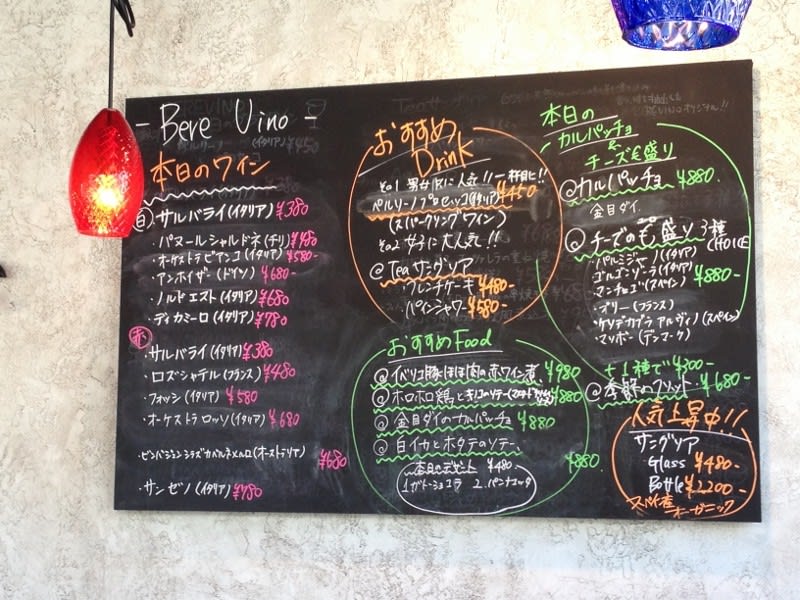 - Bere Vino -
本日のワイン
白 サルバライ(イタリア) ¥380
・パヌールシャルドネ(チリ) ¥480
・オーケストラビアンコ(イタリア) ¥580-
・アンホイザー(ドイツ) ¥680-
・ノルドエスト(イタリア) ¥680
・ディカミーロ(イタリア) ¥780
赤
サルバライ(イタリア) ¥380
・ロズシャテル(フランス) ¥480
・フォッシ(イタリア) ¥580
・オーケストラロッソ(イタリア) ¥680
・ビンバションシラズカベルネメルロ(オーストラリア) ¥680
・サンゼノ(イタリア) ¥780
おすすめ
Drink
その1 男女共に人気!!一杯目に!!
ペルリーノプロセッコ(イタリア) ¥450
(スパークリングワイン)
その2 女子に大人気!!
@Teaサングリア
フレンチケーキ ¥480-
パインシャワー ¥580-
おすすめFood
@イベリコ豚ほほ肉の赤ワイン煮 ¥980
@ホロホロ鶏とキノコのソテー ¥880
@金目ダイのカルパッチョ ¥880
@白イカとホタテのソテー ¥880
本日のデザート ¥480
1.ガトーショコラ 2.パンナコッタ
本日の
カルパッチョ
&
チーズ盛り
@カルパッチョ ¥880-
金目ダイ
@チーズの盛り3種
CHOICE
・パルミジャーノ(イタリア)
ゴルゴンゾーラ(イタリア) ¥880-
マンチェゴ(スペイン)
・ブリー(フランス)
・ケソデカブラ アルヴィノ(スペイン)
・マリボー(デンマーク)
+1種で¥300-
@季節のフリット ¥680-
人気上昇中!!
サングリア
Glass ¥480-
Bottle ¥2200-
スペイン産オーガニック